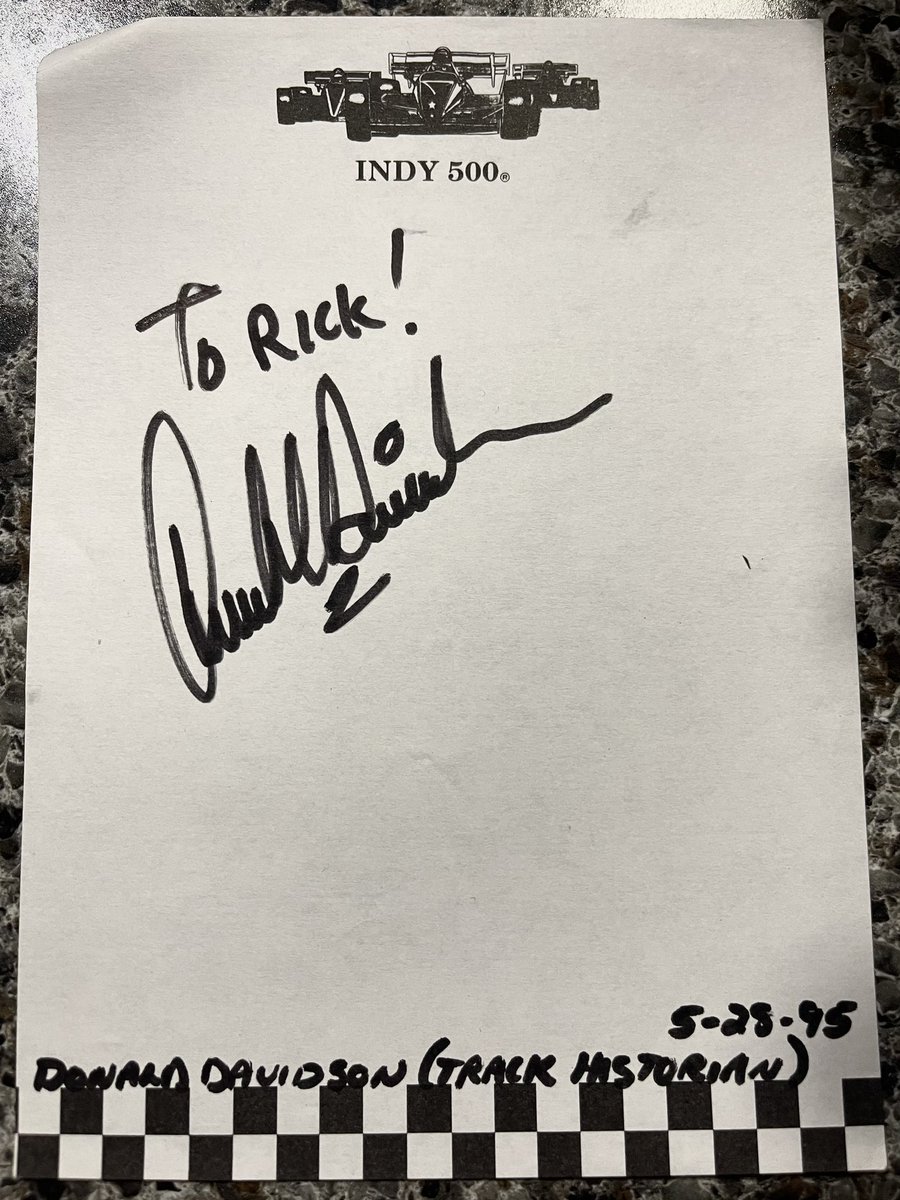 INDY 500®
To RICK!
5-28-95
DONALD DAVIDSON (TRACK HISTORIAN)